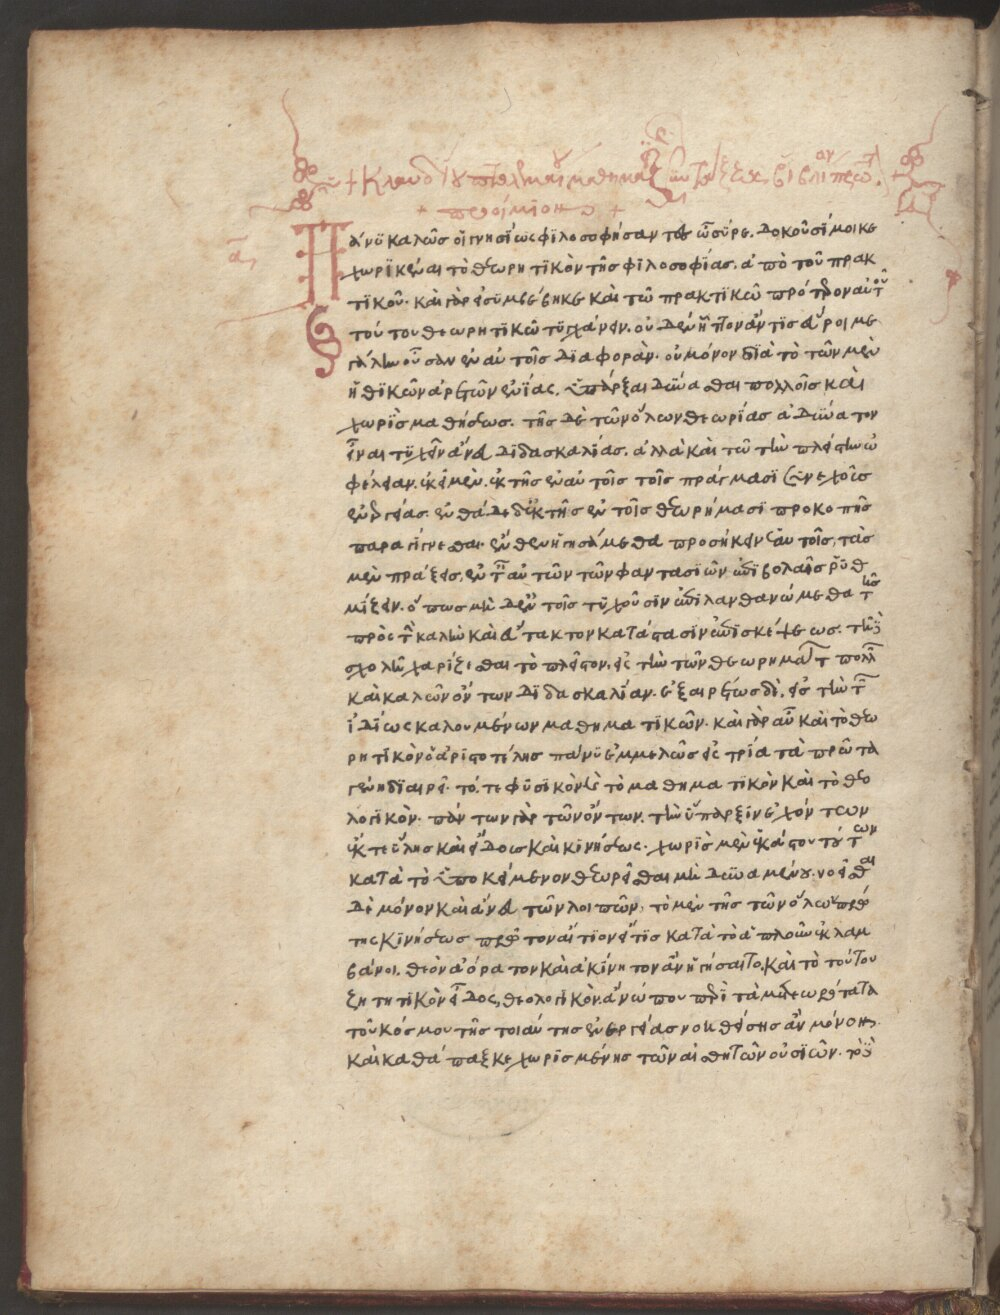 + Κλαυδίου πτολεμαίου μαθηματικῆς συντάξεως βιβλίον πρῶτον
+ προοίμιον +
α
Πάνυ καλῶς οἱ γνησίως φιλοσοφήσαντες ὦ σύρε. δοκοῦσί μοι κε
χωρϊκέναι τὸ θεωρητϊκὸν τῆς φιλοσοφίας. ἀπὸ τοῦ πρακ
τϊκοῦ· καὶ γὰρ εἰ συμβέβηκε καὶ τῶ πρακτϊκῶ πρότερον αὐτοῦ
τούτου θεωρητικῶ τϋγχάνειν. οὐδὲν ἧττον ἄν τϊς εὕροι με
γάλην οὖσαν ἐν αὐτοῖς δϊαφορὰν· οὐ μόνον διὰ τὸ τῶν μὲν
ἠθϊκῶν ἀρετῶν ἐνίας. ὑπάρξαι δύνασθαι πολλοῖς καὶ
χωρὶς μαθήσεως. τῆς δὲ τῶν ὅλων θεωρίας ἀδύνατον
εἶναι τϋχεῖν ἄνευ δϊδασκαλίας. ἀλλὰ καὶ τῶ τὴν πλείστην ὠ
φέλειαν. ἐκεῖ μὲν. ἐκ τῆς ἐν αὐτοῖς τοῖς πράγμασϊ συνεχοῦς
ἐνεργείας. ἐνθάδε δ' ἐκ τῆς ἐν τοῖς θεωρήμασϊ προκοπῆς
παραγίγνεσθαι· ἔνθεν ἡγησάμεθα προσήκειν ἑαυτοῖς, τὰς
μὲν πράξεις. ἐν ταῖς αὐτῶν τῶν φαντασϊῶν ἐπιβολαῖς ῥυθ
μίζειν. ὅπως μὴ δ' ἐν τοῖς τϋχοῦσϊν ἐπιλανθανώμεθα τῆς
πρὸς τὴν καλὴν καὶ εὔτακτον κατάστασϊν ἐπισκέψεως. τῆ δὲ
σχολῆ χαρίζεσθαι τὸ πλεῖστον. εἰς τὴν τῶν θεωρημάτων πολλῶν
καὶ καλῶν ὄντων δϊδασκαλίαν. ἐξαιρέτως δὲ, εἰς τὴν τῶν
ἰδίως καλουμένων μαθηματϊκῶν· καὶ γὰρ αὖ καὶ τὸ θεω
ρητϊκὸν ὁ ἀριστοτέλης πάνϋ ἐμμελῶς εἰς τρία τὰ πρῶτα
γένη δϊαιρεῖ· τό, τε φϋσϊκὸν καὶ τὸ μαθηματϊκὸν καὶ τὸ θεο
λογϊκόν· πάντων γὰρ τῶν ὄντων. τὴν ὕπαρξιν ἐχόντων
ἔκ τε ὕλης καὶ εἴδους καὶ κινήσεως. χωρὶς μὲν ἑκάστου τούτων
κατὰ τὸ ὑποκείμενον θεωρεῖσθαι μὴ δυναμένου. νοεῖσθαι
δὲ μόνον καὶ ἄνευ τῶν λοιπῶν, τὸ μὲν τῆς τῶν ὅλων πρώ
της κινήσεως πρῶτον αἴτϊον εἴ τϊς κατὰ τὸ ἁπλοῦν ἐκλαμ
βάνοι. θεὸν ἀόρατον καὶ ἀκίνητον ἂν ἡγήσαιτο. καὶ τὸ τούτου
ζητητϊκὸν εἶδος, θεολογϊκὸν. ἄνω που περὶ τὰ μετεωρότατα
τοῦ κόσμου τῆς τοιαύτης ἐνεργείας νοηθείσης ἂν μόνον.
καὶ καθάπαξ κεχωρισμένης τῶν αἰσθητῶν οὐσϊῶν. τὸ δὲ